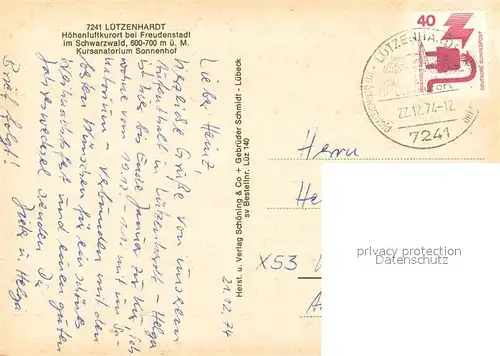 7241 LÜTZENHARDT
Höhenluftkurort bei Freudenstadt
im Schwarzwald, 600-700 m ü. M.
Kursanatorium Sonnenhof
21.12.74
Lieber Heinz,
herzliche Grüße von unserem
Aufenthalt in Lützenhardt - Helga
ist hier bis Ende Januar zur Kur, ich
wohne vom 19.12. - 1.1. mit im Sa-
natorium - verbunden mit den
besten Wünschen für ein schönes
Weihnachtsfest und einen guten
Jahreswechsel senden Dir
Dieter u. Helga
Brief folgt!
Herst. u. Verlag Schöning & Co + Gebrüder Schmidt - Lübeck
sv Bestellnr. Lüz 140
40
DEUTSCHE BUNDESPOST
LÜTZENHARDT
22.12.74-12
7241
Herrn
He
X53
privacy protection
watermark